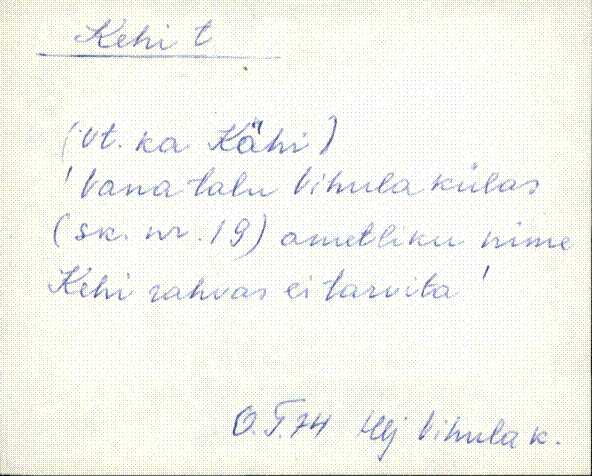 Kehi t
(vt. ka Kähi)
'Vana talu Vihula külas
(sk. nr. 19) ametliku nime
Kehi rahvas ei tarvita'
O.T.74 Hlj Vihula k.